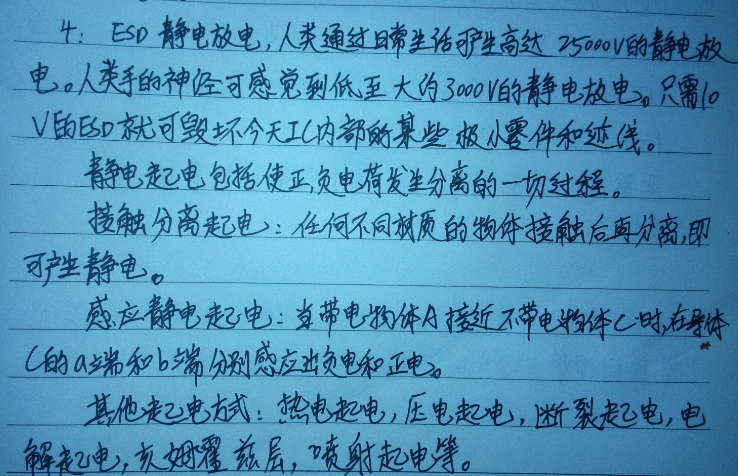 4: ESD 静电放电,人类通过日常生活可产生高达 25000V的静电放
电。人类手的神经可感觉到低至大约3000V的静电放电。只需10
V的ESD就可毁坏今天IC内部的某些极小零件和迹线。
静电起电包括使正负电荷发生分离的一切过程。
接触分离起电:任何不同材质的物体接触后再分离,即
可产生静电。
感应静电起电:当带电物体A接近不带电物体C时,在导体
C的a端和b端分别感应出负电和正电。
其他起电方式:热电起电,压电起电,断裂起电,电
解起电,亥姆霍兹层,喷射起电等。